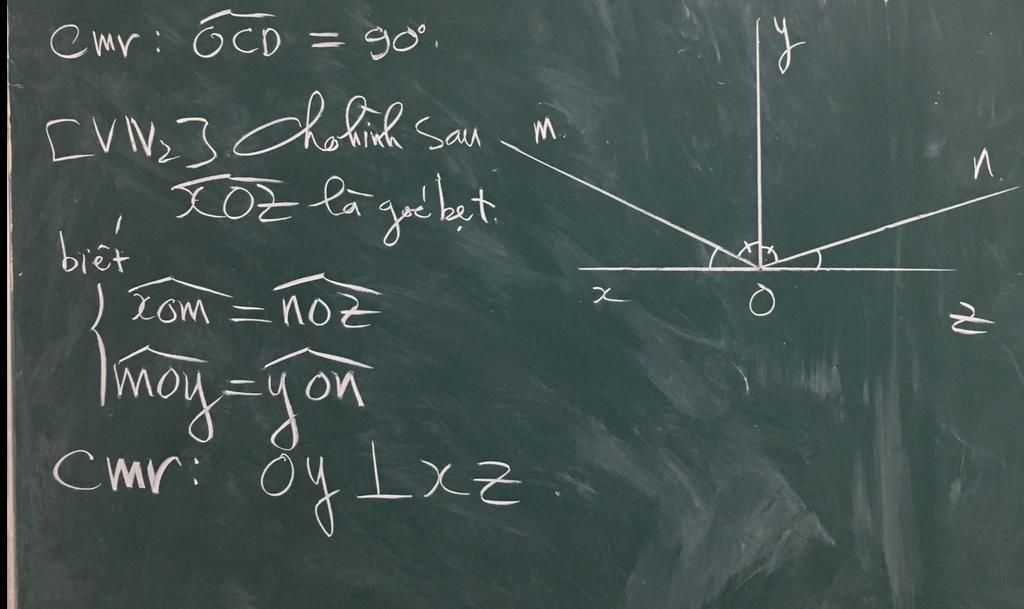 Cmr: OCD = 90°.
[VN₂] Cho hình sau
xOz là góc bẹt.
biết
xom = noz
moy = yon
Cmr: Oy ⊥ xz.
y
m.
n.
x
O
z